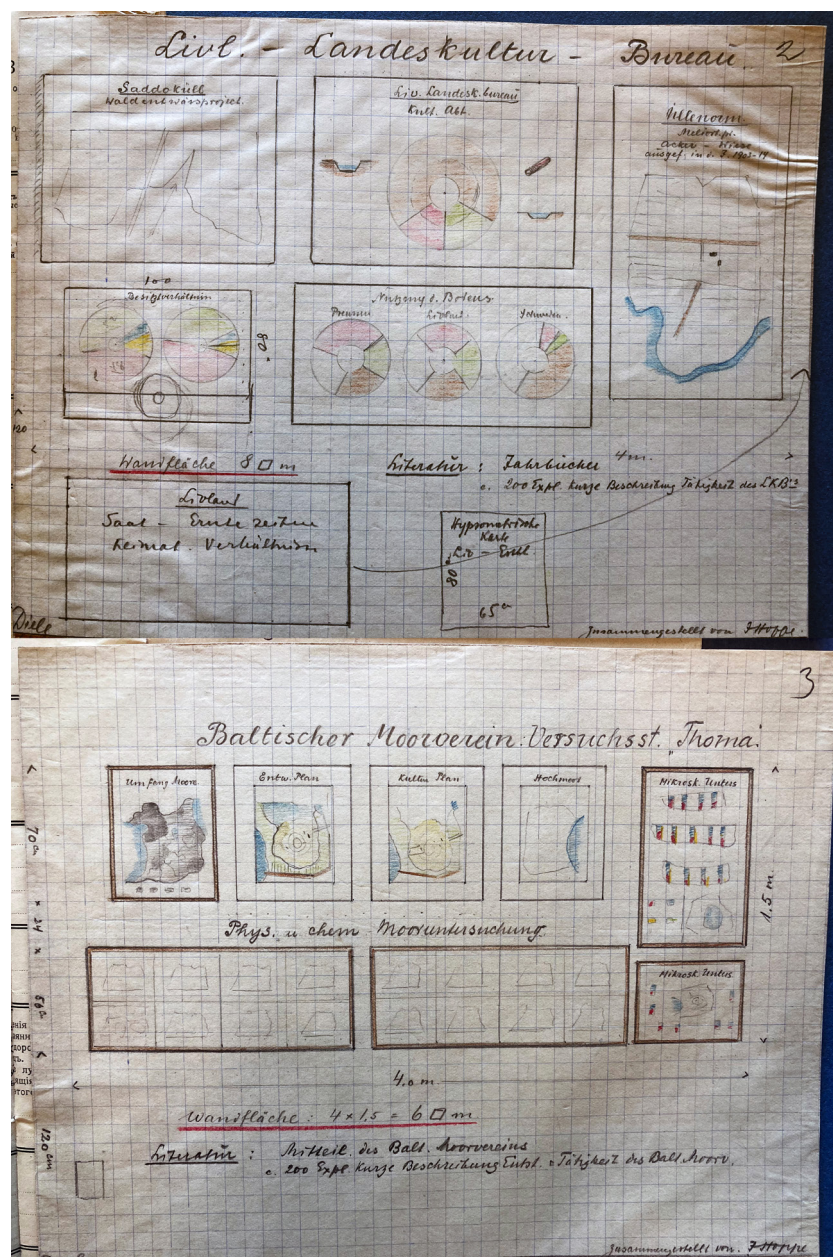 Livl. - Landeskultur - Bureau. 2
Saddoküll
Waldentwässproject.
Liv. Landesk. bureau
Kult. Abt.
Üllenorm
Meliort. pr.
Acker - Wiese
ausgef. in d. J. 1903-14
100
Besitzverhältnin
80
Nutzung d. Bodens
Preussen
Livland
Schweden
120
Wandfläche 8 □ m
4 m.
Literatur : Jahrbücher
c. 200 Expl. kurze Beschreibung Tätigkeit des LKB
Livland
Saat - Ernte zeiten
Keimat. Verhältnisse
Hypsometrische
Karte
Liv - Estl.
80
65
Diele
Zusammengestellt von J Hoppe.
3
Baltischer Moorverein. Versuchsst. "Thoma".
Umfang Moore
Entw. Plan
Kultur Plan
Hochmoor
Mikrosk. Unters
70 cm
1.5 m
Phys. u chem Mooruntersuchung.
Mikrosk. Unters
4.0 m
Wandfläche : 4 x 1,5 = 6 □ m
120 cm
Literatur : Mitteil. des Balt. Moorvereins
c. 200 Expl Kurze Beschreibung Entst. u Tätigkeit des Balt Moorv.
Zusammengestellt von. J Hoppe